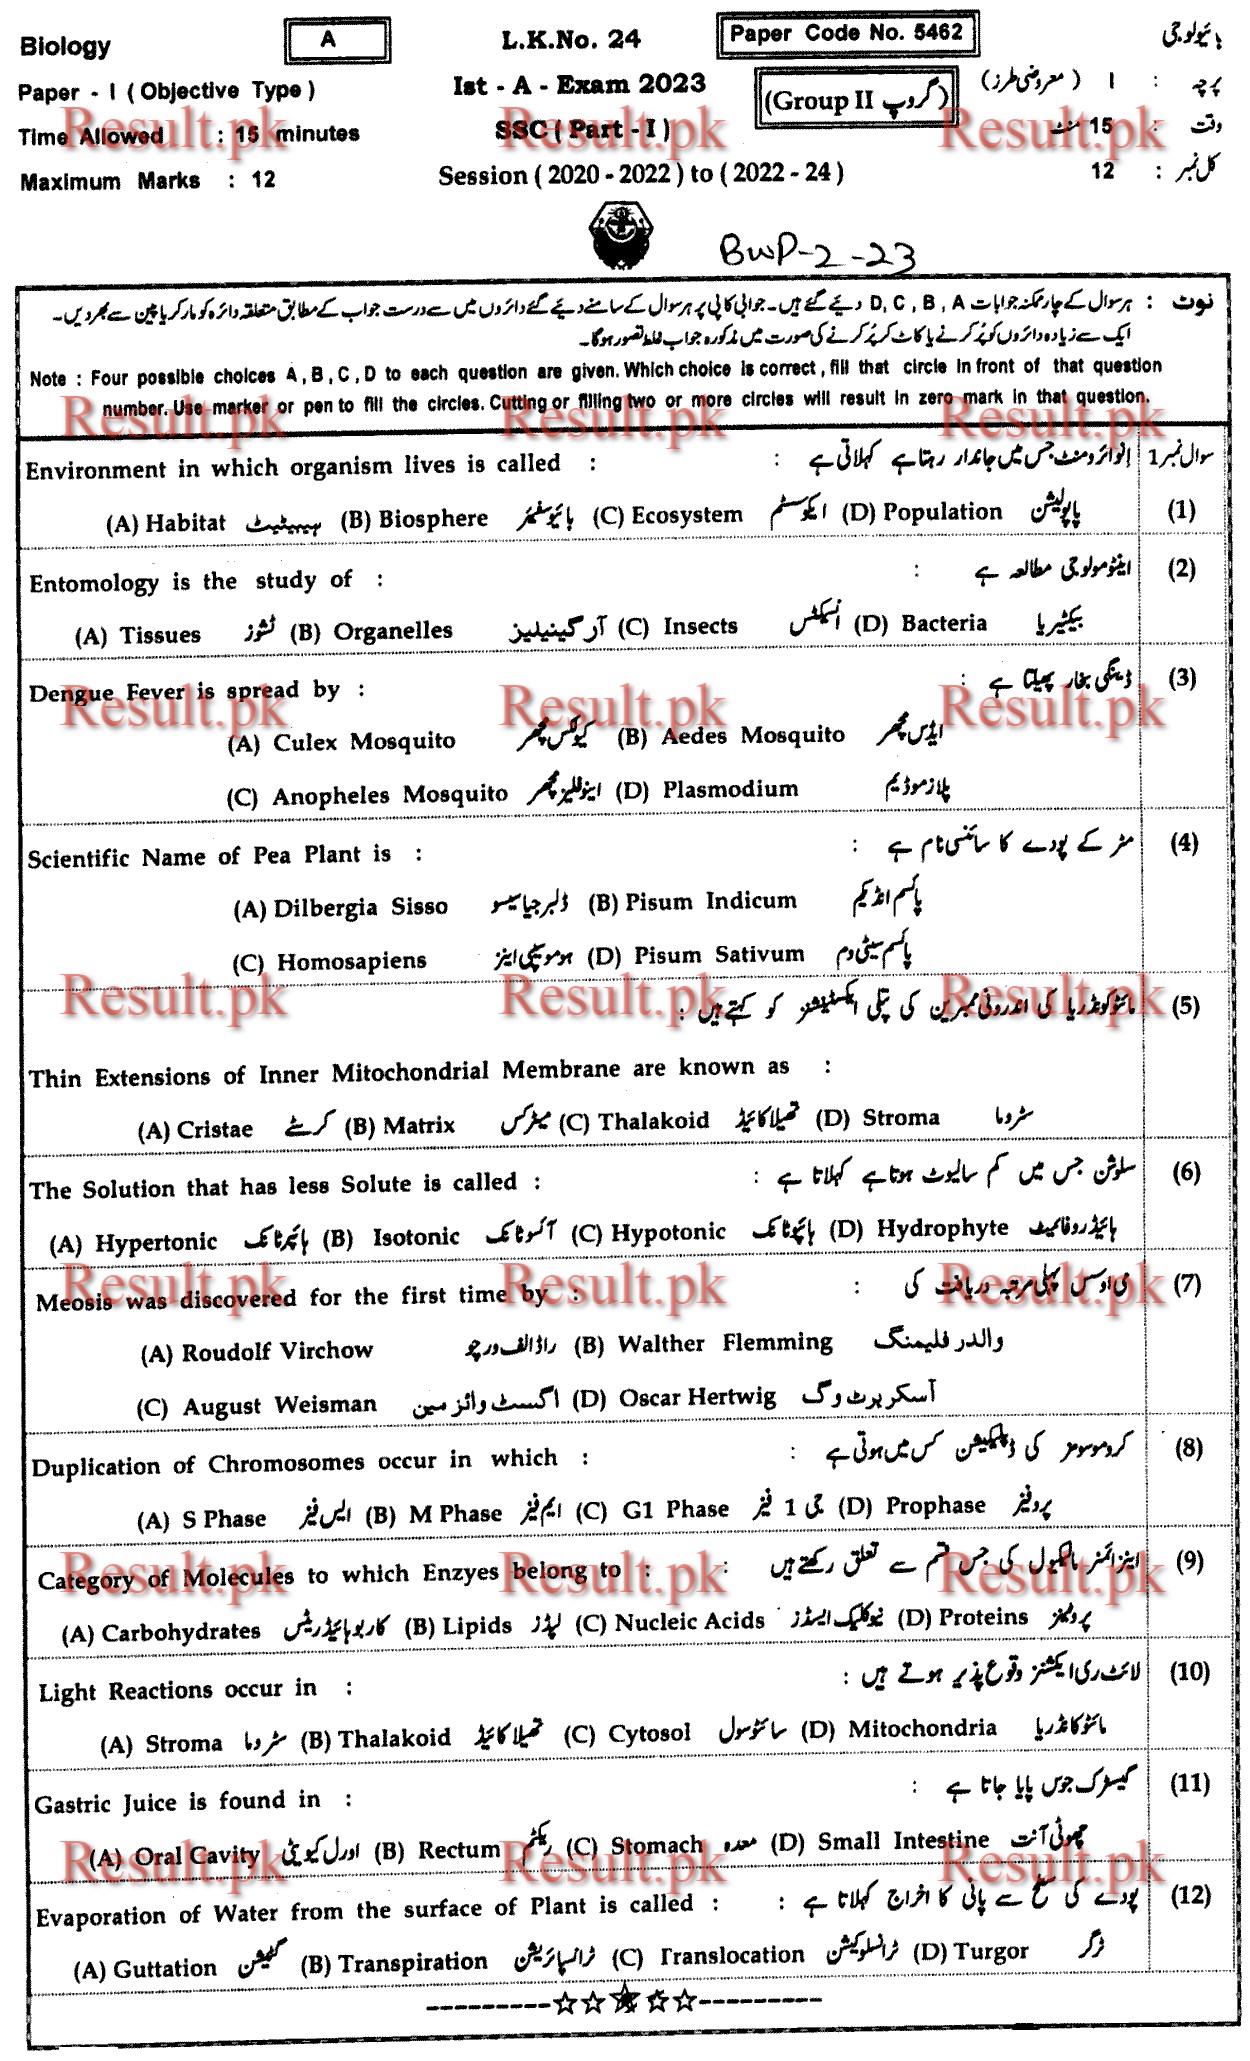 Biology
A
L.K.No. 24
Paper Code No. 5462
بائیولوجی
Paper - I ( Objective Type )
Ist - A - Exam 2023
(Group II گروپ)
پرچہ : I ( معروضی طرز )
Time Allowed : 15 minutes
SSC ( Part - I )
وقت : 15 منٹ
Maximum Marks : 12
Session ( 2020 - 2022 ) to ( 2022 - 24 )
کل نمبر : 12
BWP-2-23
نوٹ : ہر سوال کے چار ممکنہ جوابات D, C, B, A دیئے گئے ہیں۔ جوابی کاپی پر ہر سوال کے سامنے دیئے گئے دائروں میں سے درست جواب کے مطابق متعلقہ دائرہ کو مارکر یا پین سے بھر دیں۔
ایک سے زیادہ دائروں کو پُر کرنے یا کاٹ کر پُر کرنے کی صورت میں مذکورہ جواب غلط تصور ہوگا۔
Note : Four possible choices A , B , C , D to each question are given. Which choice is correct , fill that circle in front of that question
number. Use marker or pen to fill the circles. Cutting or filling two or more circles will result in zero mark in that question.
Environment in which organism lives is called : انوائرومنٹ جس میں جاندار رہتا ہے کہلاتی ہے : سوال نمبر 1
(A) Habitat ہیبیٹیٹ (B) Biosphere بائیوسفیئر (C) Ecosystem ایکوسسٹم (D) Population پاپولیشن (1)
Entomology is the study of : اینٹومولوجی مطالعہ ہے : (2)
(A) Tissues ٹشوز (B) Organelles آرگینیلیز (C) Insects انسیکٹس (D) Bacteria بیکٹیریا
Dengue Fever is spread by : ڈینگی بخار پھیلتا ہے : (3)
(A) Culex Mosquito کیولکس مچھر (B) Aedes Mosquito ایڈس مچھر
(C) Anopheles Mosquito اینوفلیز مچھر (D) Plasmodium پلازموڈیم
Scientific Name of Pea Plant is : مٹر کے پودے کا سائنسی نام ہے : (4)
(A) Dilbergia Sisso ڈلبرجیا سیسو (B) Pisum Indicum پائسم انڈیکم
(C) Homosapiens ہوموسیپی اینز (D) Pisum Sativum پائسم سیٹی وم
مائٹوکونڈریا کی اندرونی ممبرین کی پتلی ایکسٹینشنز کو کہتے ہیں : (5)
Thin Extensions of Inner Mitochondrial Membrane are known as :
(A) Cristae کرسٹے (B) Matrix میٹرکس (C) Thalakoid تھیلاکائیڈ (D) Stroma سٹروما
The Solution that has less Solute is called : سلوشن جس میں کم سالیوٹ ہوتا ہے کہلاتا ہے : (6)
(A) Hypertonic ہائپرٹانک (B) Isotonic آئسوٹانک (C) Hypotonic ہائپوٹانک (D) Hydrophyte ہائیڈروفائیٹ
Meosis was discovered for the first time by : می اوسس پہلی مرتبہ دریافت کی : (7)
(A) Roudolf Virchow راڈالف ورچو (B) Walther Flemming والدر فلیمنگ
(C) August Weisman اگسٹ وائز مین (D) Oscar Hertwig آسکر ہرٹ وگ
Duplication of Chromosomes occur in which : کروموسومز کی ڈپلیکیشن کس میں ہوتی ہے : (8)
(A) S Phase ایس فیز (B) M Phase ایم فیز (C) G1 Phase جی 1 فیز (D) Prophase پروفیز
Category of Molecules to which Enzyes belong to : اینزائمز مالیکیول کی جس قسم سے تعلق رکھتے ہیں : (9)
(A) Carbohydrates کاربوہائیڈریٹس (B) Lipids لپڈز (C) Nucleic Acids نیوکلیک ایسڈز (D) Proteins پروٹینز
Light Reactions occur in : لائٹ ری ایکشنز وقوع پذیر ہوتے ہیں : (10)
(A) Stroma سٹروما (B) Thalakoid تھیلاکائیڈ (C) Cytosol سائٹوسول (D) Mitochondria مائٹوکانڈریا
Gastric Juice is found in : گیسٹرک جوس پایا جاتا ہے : (11)
(A) Oral Cavity اورل کیویٹی (B) Rectum ریکٹم (C) Stomach معدہ (D) Small Intestine چھوٹی آنت
Evaporation of Water from the surface of Plant is called : پودے کی سطح سے پانی کا اخراج کہلاتا ہے : (12)
(A) Guttation گٹیشن (B) Transpiration ٹرانسپائریشن (C) Translocation ٹرانسلوکیشن (D) Turgor ٹرگر
---------☆☆☆☆☆---------
Result.pk Result.pk Result.pk
Result.pk Result.pk Result.pk
Result.pk Result.pk Result.pk
Result.pk Result.pk Result.pk
Result.pk Result.pk Result.pk
Result.pk Result.pk Result.pk
Result.pk Result.pk Result.pk